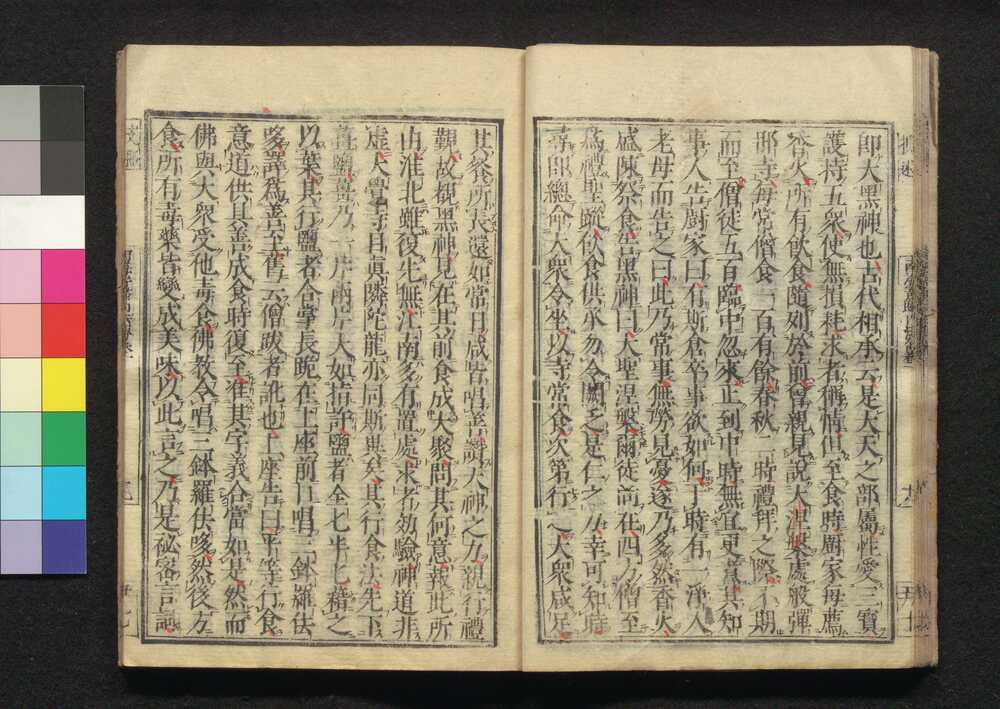 即大黑神也古代相承云是大天之部屬性愛三寶
護持五衆使無損耗求者稱情但至食時厨家每薦
香火所有飲食隨列於前曾親見說大涅槃處般彈
那寺每常僧食一百有餘春秋二時禮拜之際不期
而至僧徒五百臨中忽來正到中時無宜更煮其知
事人告厨家曰有斯倉卒事欲如何于時有一淨人
老母而告之曰此乃常事無勞見憂遂乃多然香火
盛陳祭食告黑神曰大聖涅槃爾徒尚在四方僧至
為禮聖蹤飲食供承勿令闕乏是仁之力幸可知時
尋即總命大衆令坐以寺常食次第行之大衆咸足
其餐所長還如常日咸皆唱善讚大神之力親行禮
覲故覩黑神見在其前食成大聚問其何意報此所
由淮北雖復先無江南多有置處求者効驗神道非
虛大覺寺目真隣陀龍亦同斯異矣其行食法先下
薑鹽薑乃一片兩片大如指許鹽者全匕半匕藉之
以葉其行鹽者合掌長跪在上座前口唱三鉢羅佉
哆譯為善至舊云僧跋者訛也上座告曰平等行食
意道供具善成食時復至准其字義合當如是然而
佛與大衆受他毒食佛教令唱三鉢羅佉哆然後方
食所有毒藥皆變成美味以此言之乃是秘密言詞